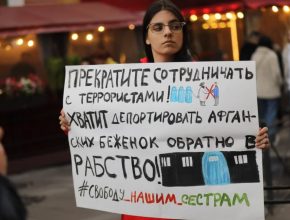 ПРЕКРАТИТЕ СОТРУДНИЧАТЬ
С ТЕРРОРИСТАМИ!
ХВАТИТ ДЕПОРТИРОВАТЬ АФГАН-
СКИХ БЕЖЕНОК ОБРАТНО В
РАБСТВО!
#СВОБОДУ_НАШИМ_СЕСТРАМ